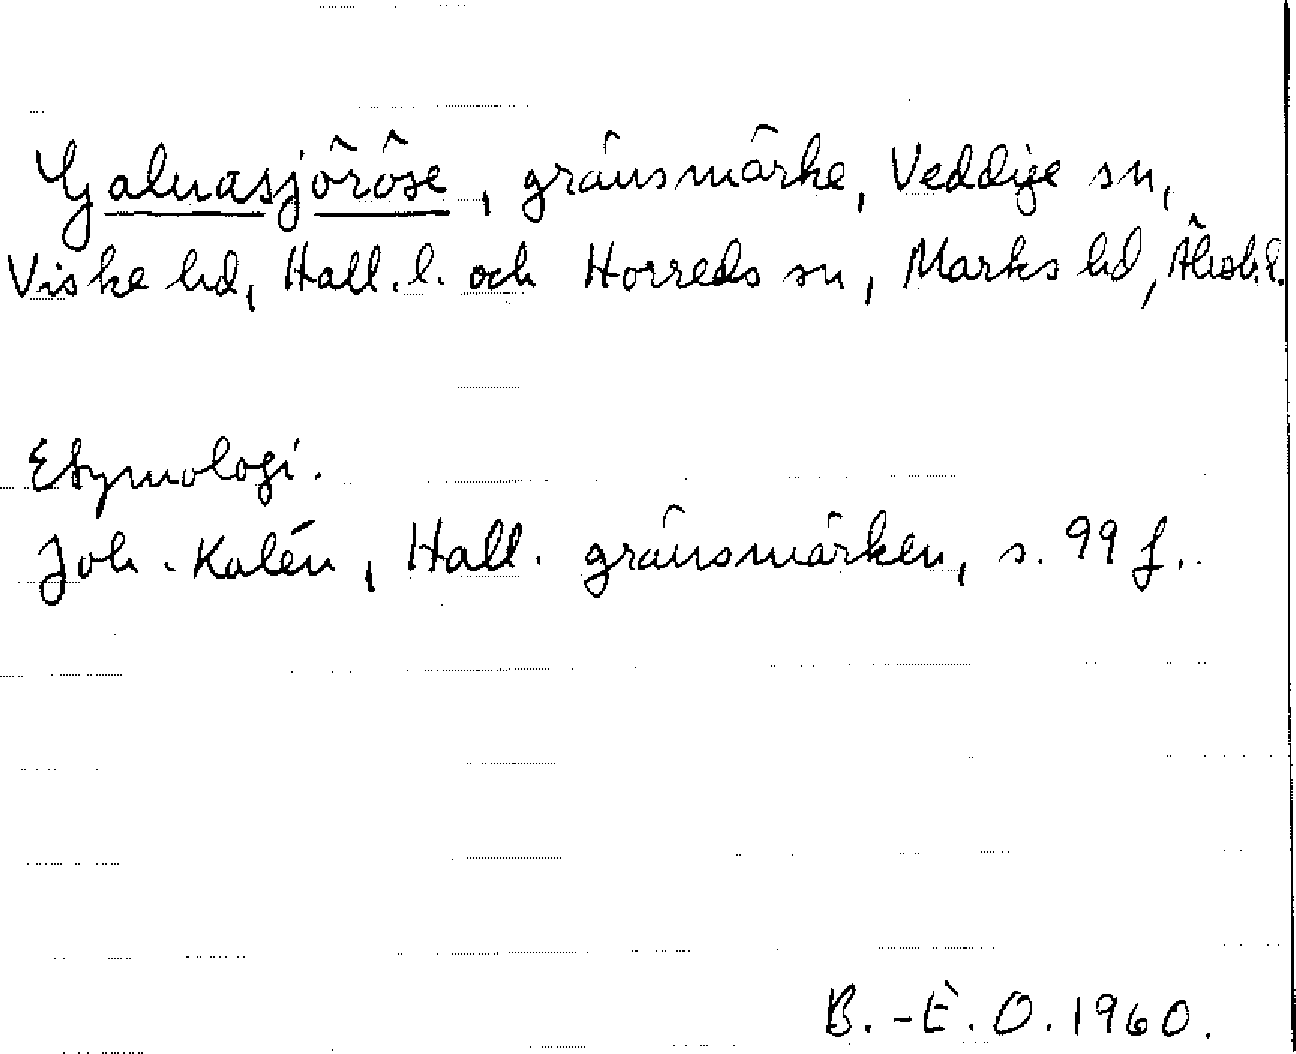 Galnasjöröse, gränsmärke, Veddige sn,
Viske hd, Hall. l. och Horreds sn, Marks hd, Älvsb. l.
Etymologi.
Joh. Kalén, Hall. gränsmärken, s. 99 f..
B.-E. O. 1960.